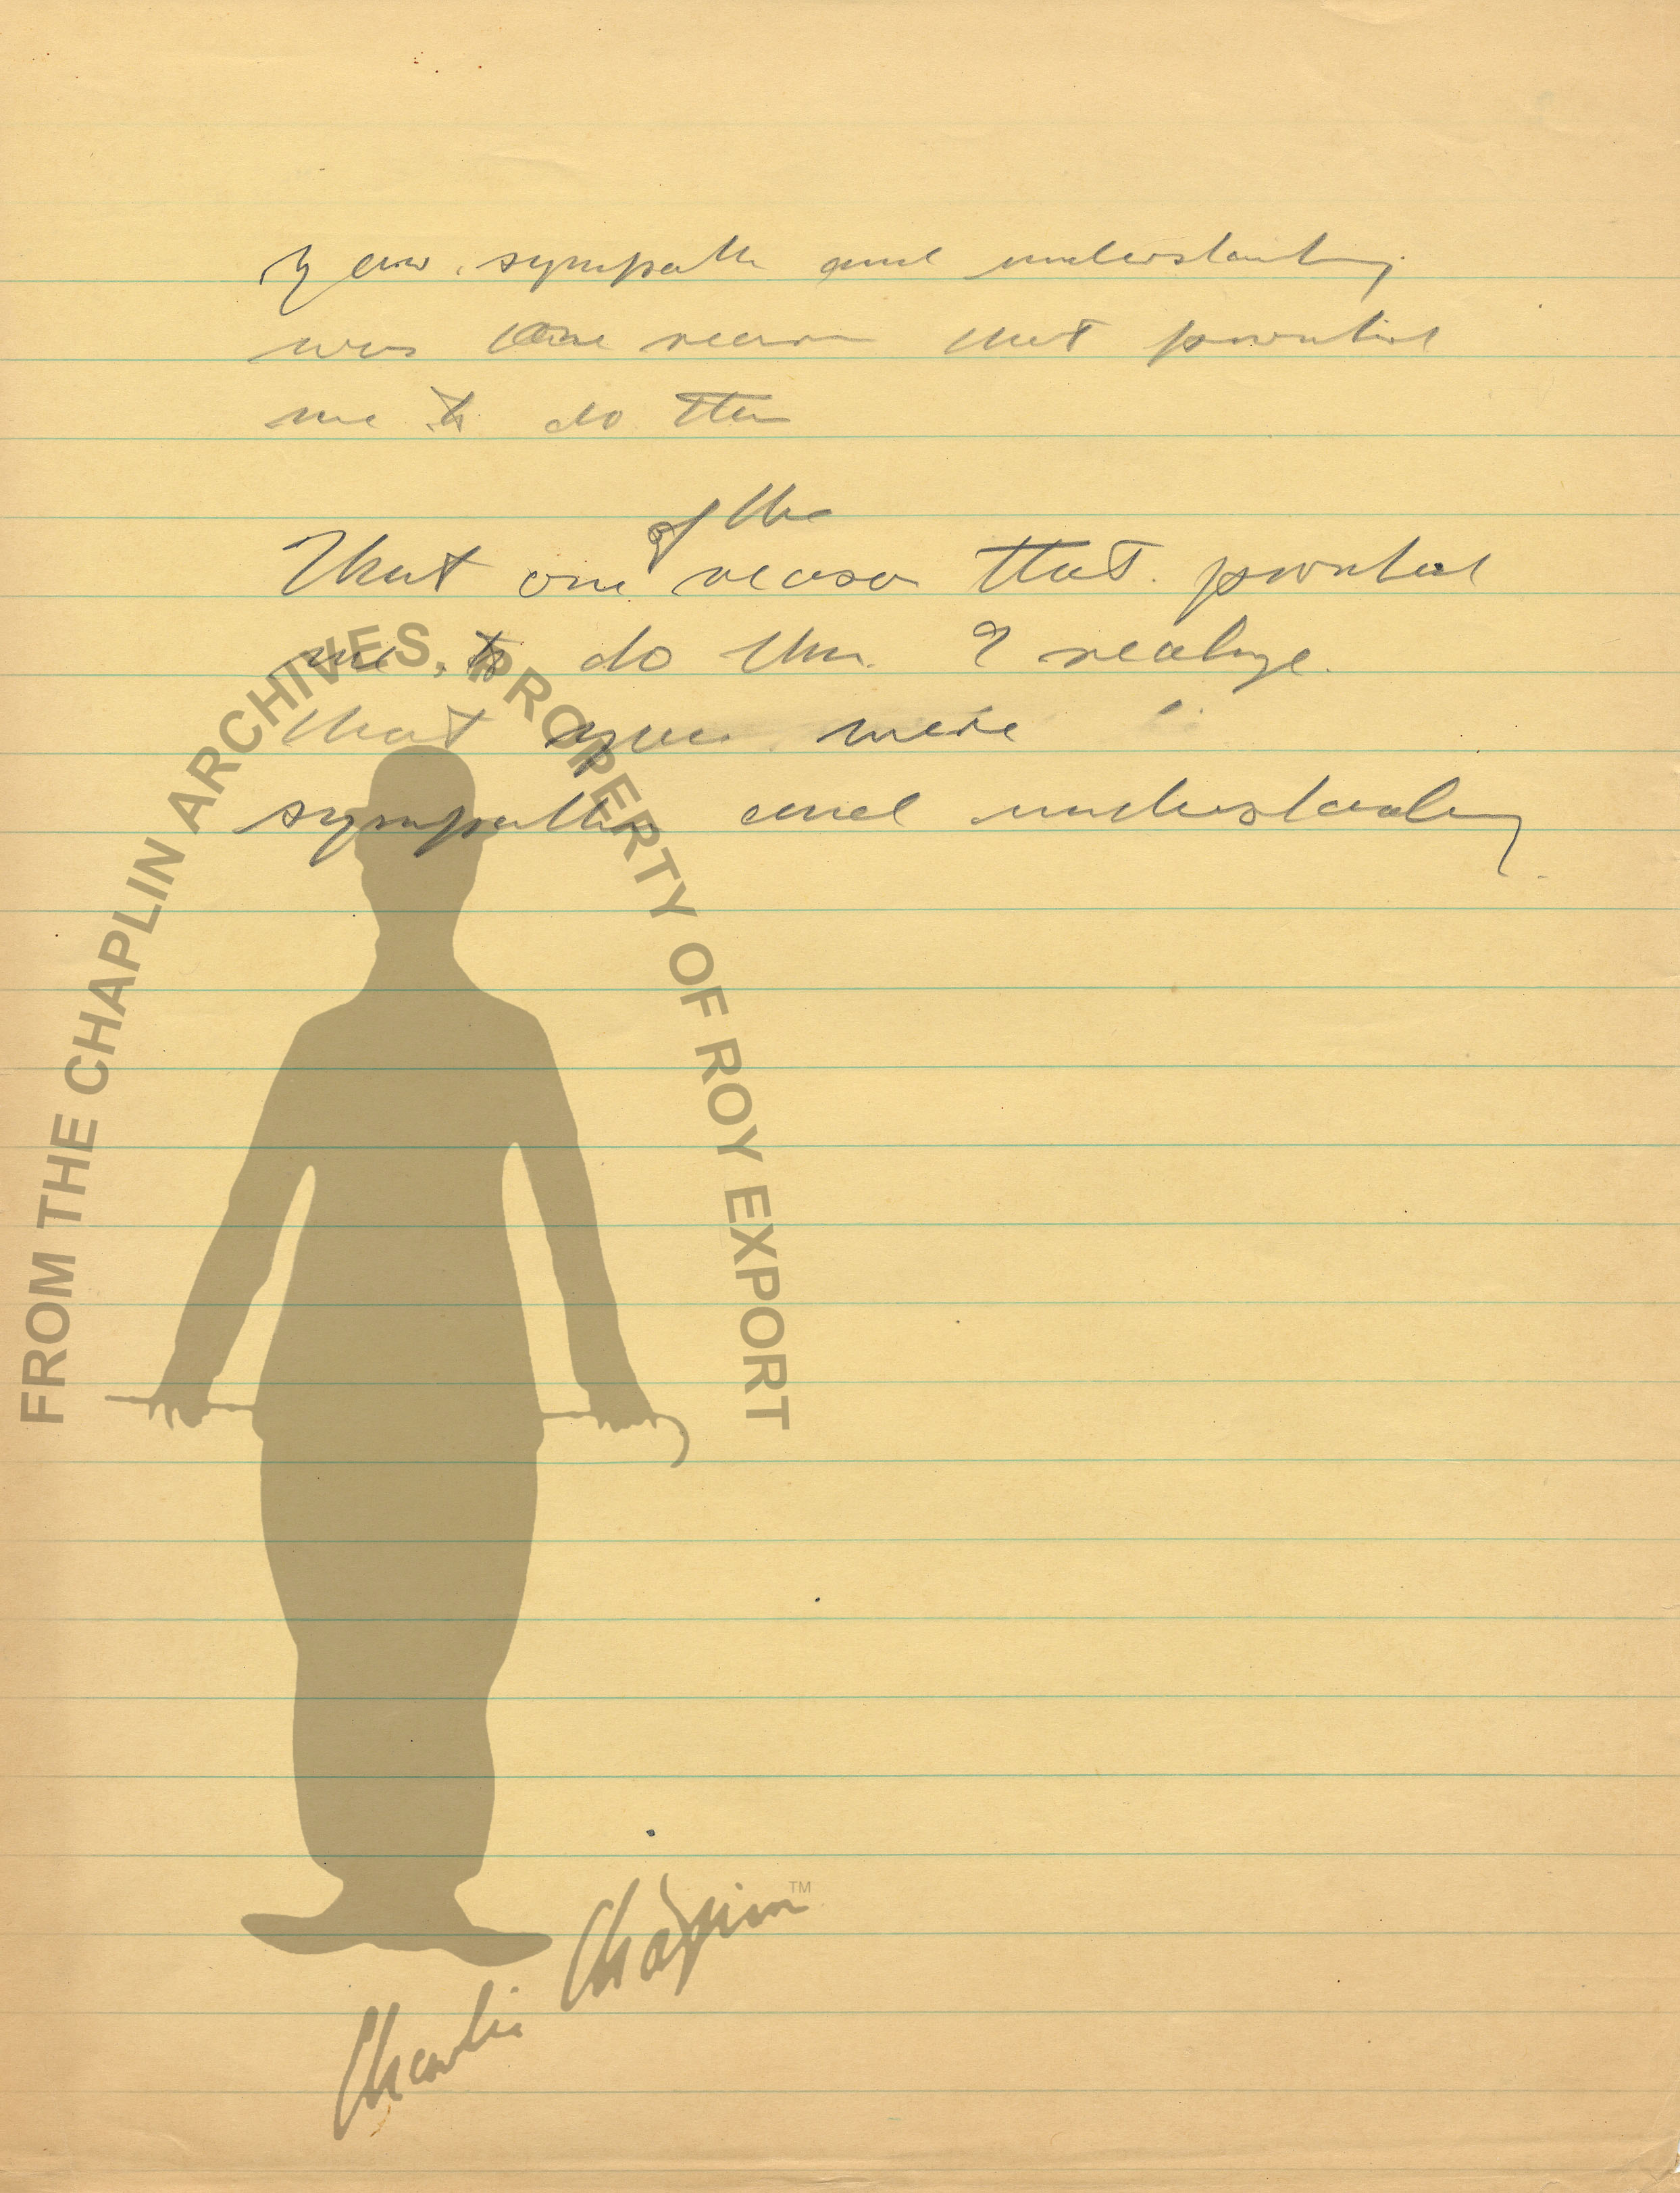 your sympathy and understanding
was one reason that prompted
me to do this
of the
That one reason that prompted
me to do this. I realize
that you were
sympathetic and understanding
FROM THE CHAPLIN ARCHIVES, PROPERTY OF ROY EXPORT
Charlie Chaplin™